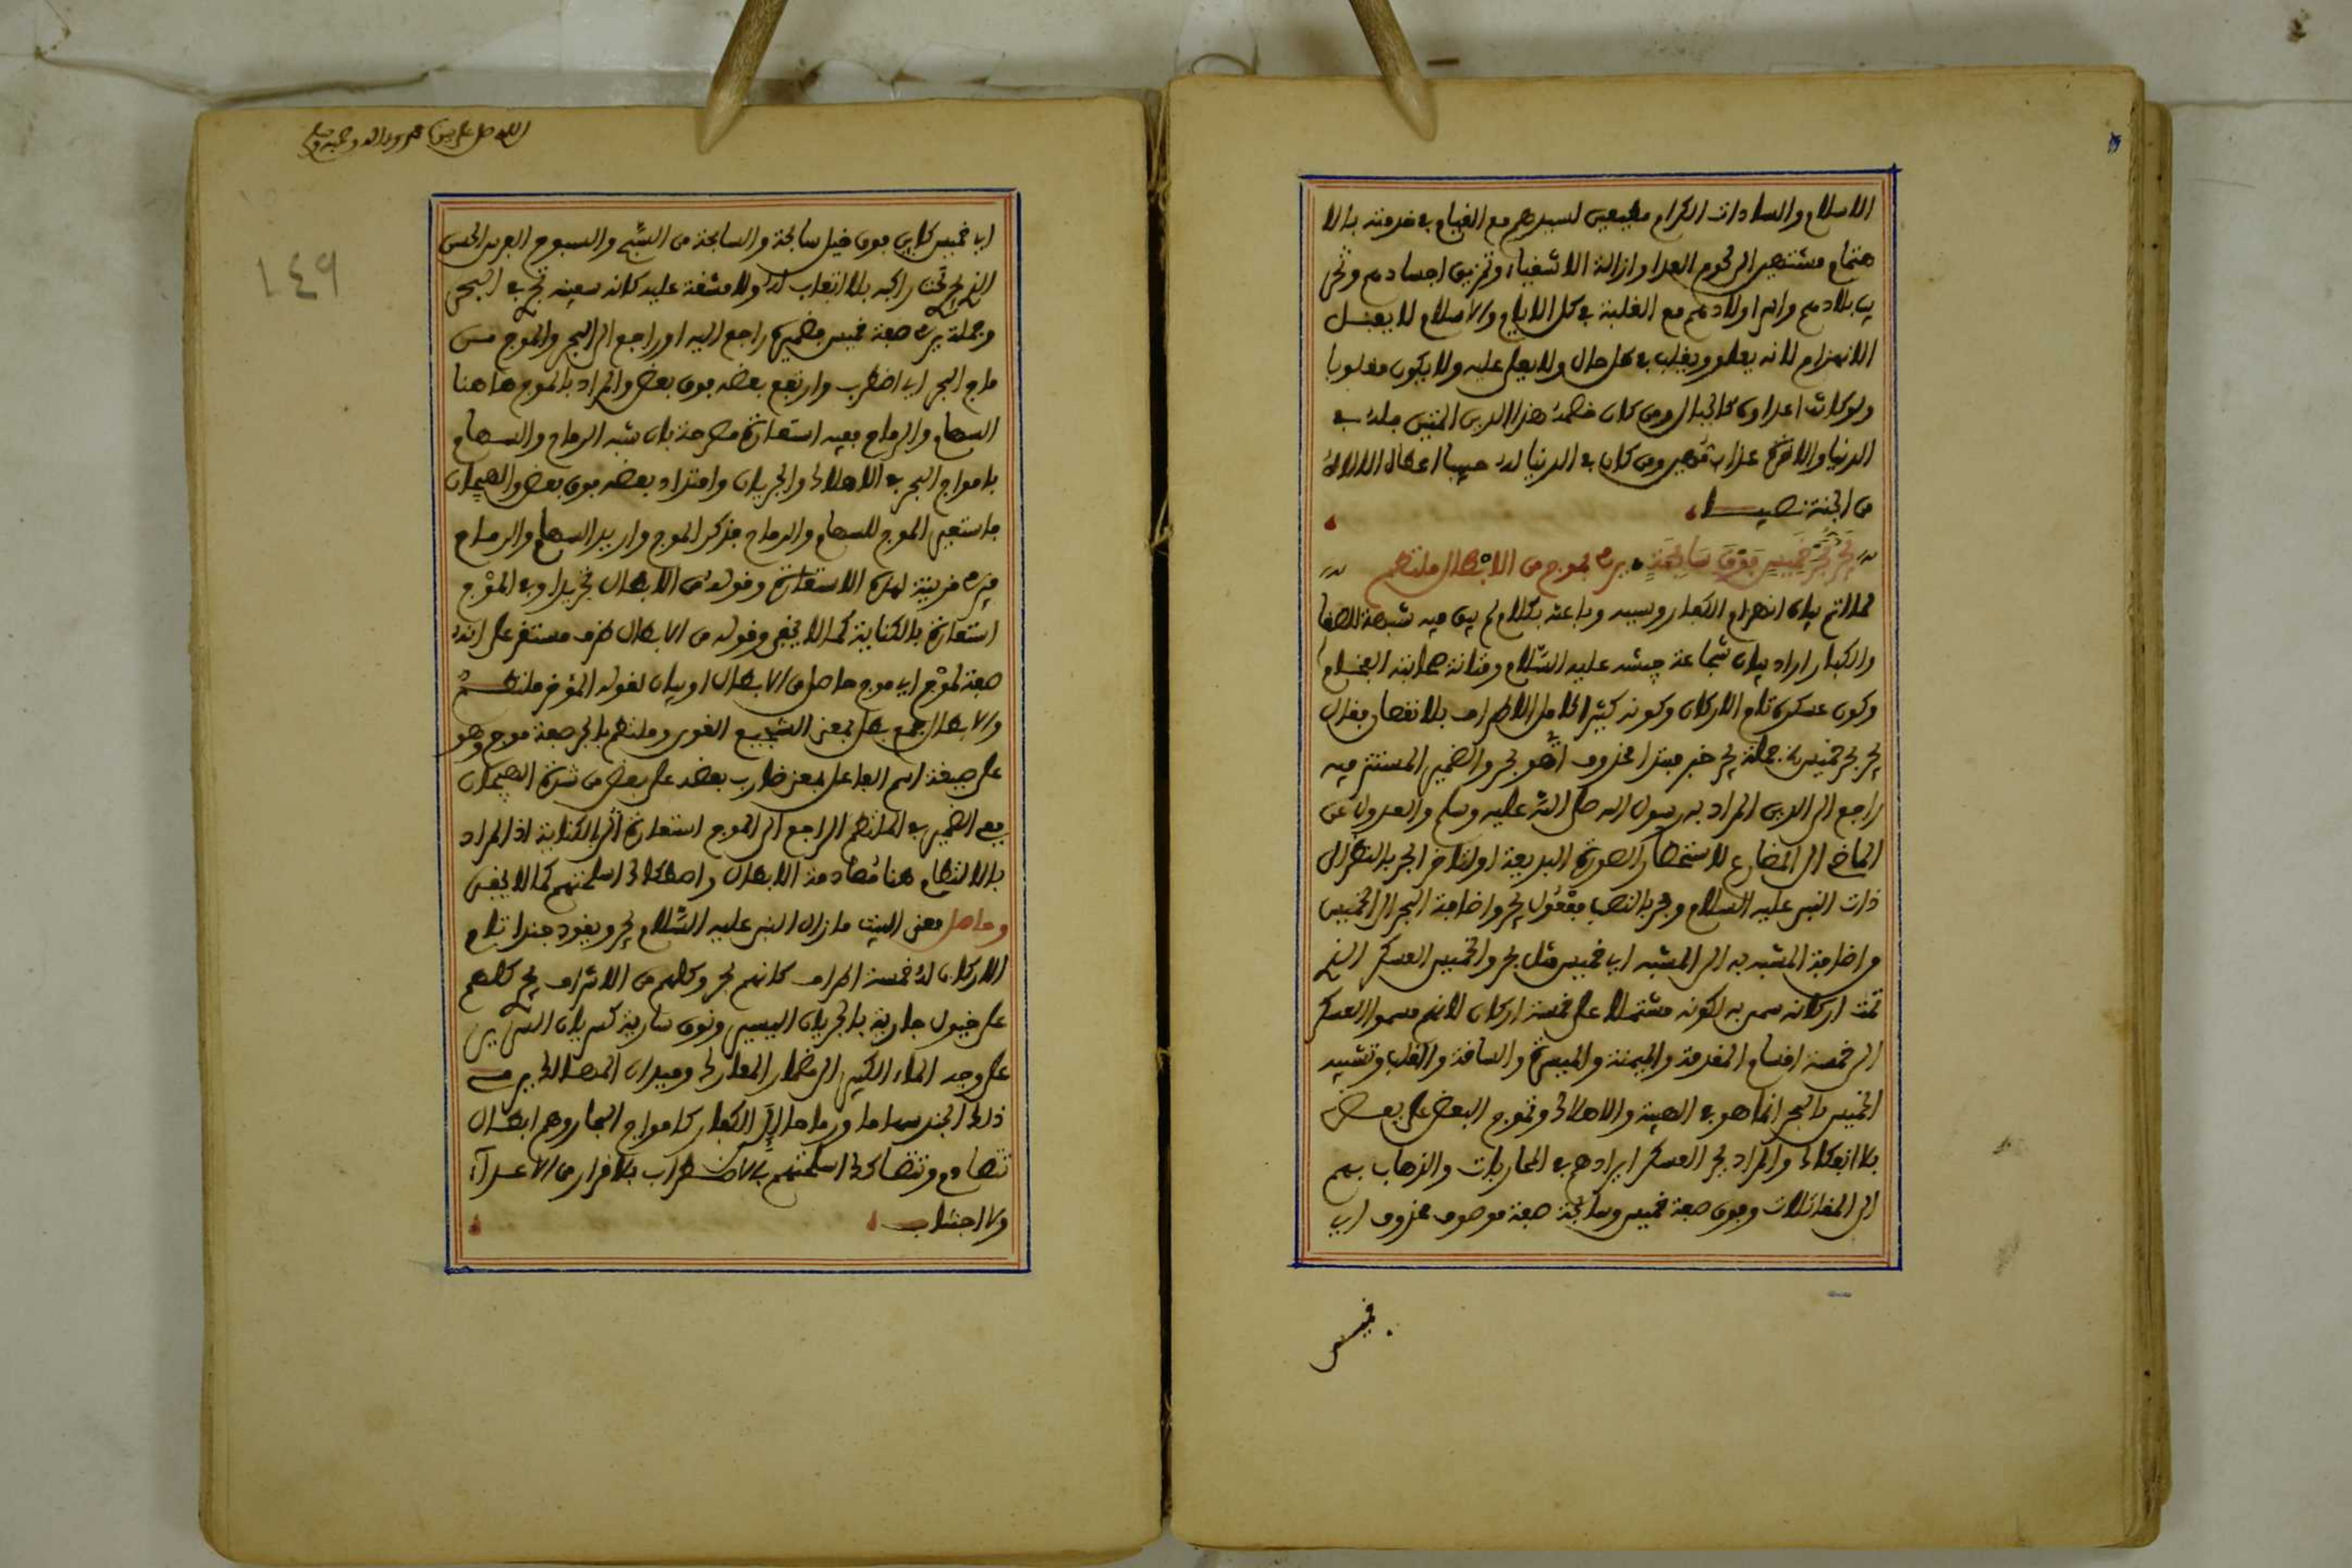 الاسلام والسادات الكرام مطيعين لسيدهم مع القيام في خدمته بالا
هتمام مشتهين الى لحوم العدا وازالة الاشقياء وتمزيق اجسادهم وتخر
يب بلادهم واسر اولادهم مع الغلبة في كل الايام والاسلام لا يقبل
الانهزام لانه يعلو ويغلب في كل حال ولا يعلى عليه ولا يكون مغلوبا
ولو كانت اعداؤه كالجبال ومن كان خصمه هذا الدين المتين فله في
الدنيا والاخرة عذاب مهين ومن كان في الدنيا له حبيبا اعطاه الله له
من الجنة نصيبا
يَجُرُّ بَحْرَ خَمِيسٍ فَوْقَ سَابِحَةٍ يرمي بموج من الابطال ملتطم
لما اتم بيان انهزام الكفار وسببه وباعثه بكلام لم يبق فيه شبهة للصغا
والكبار اراد بيان شجاعة جيشه عليه السلام ومتانة صحابته الفخام
وكون عسكره تام الاركان وكونه كثيرا كامل الاطراف بلا نقصان فقال
يجر بحر خميس الخ جملة يجر خبر مبتدا محذوف اي هو يجر والضمير المستتر فيه
راجع الى الدين المراد به رسول الله صلى الله عليه وسلم والعدول عن
الماضي الى المضارع لاستحضار الصورة البديعة او لتأخر الجر بالنظر الى
ذات النبي عليه السلام وبحر بالنصب مفعول يجر واضافة البحر الى الخميس
من اضافة المشبه به الى المشبه اي خميس مثل بحر والخميس العسكر الذي
تمت اركانه سمي به لكونه مشتملا على خمسة اركان لانهم قسموا العسكر
الى خمسة اقسام المقدمة والميمنة والميسرة والساقة والقلب وتشبيه
الخميس بالبحر انما هو في الهيبة والاهلاك وتموج البعض على بعض
بلا انفكاك والمراد بجر العسكر ايرادهم في المحاربات والذهاب بهم
الى المقاتلات وفوق صفة خميس وسابحة صفة موصوف محذوف اي
خميس
اللهم صل على سيدنا محمد وعلى اله وصحبه وسلم
١٤٩
اي خميس كاين فوق خيل سابحة والسابحة من السبح والسبوح الفرس الحسن
الذي يجري تحت راكبه بلا اتعاب له ولا مشقة عليه كانه سفينة تجري في البحر
وجملة يرمي صفة خميس فضميره راجع اليه او راجع الى البحر والموج من
ماج البحر اي اضطرب وارتفع بعضه فوق بعض والمراد بالموج هاهنا
السهام والرماح ففيه استعارة مصرحة بان شبه الرماح والسهام
بامواج البحر في الاهلاك والجريان وامتداد بعضه فوق بعض والهيجان
فاستعير الموج للسهام والرماح فذكر الموج واريد السهام والرماح
فيرمي قرينة لهذه الاستعارة وقوله من الابطال تجريد او في الموج
استعارة بالكناية كما لا يخفى وقوله من الابطال ظرف مستقر على انه
صفة لموج اي موج حاصل من الابطال او بيان لقوله المؤخر ملتطم
والابطال جمع بطل بمعنى الشجيع القوي وملتطم بالجر صفة موج وهو
على صيغة اسم الفاعل بمعنى ضارب بعضه على بعض من شدة الهيجان
ففي الضمير في الملتطم الراجع الى الموج استعارة اخرى بالكناية اذ المراد
بالالتطام هنا مصادمة الابطال واصطكاك اسلحتهم كما لا يخفى
وحاصل معنى البيت ما زال النبي عليه السلام يجر ويقود جندا تام
الاركان له خمسة اطراف كانهم بحر وكلهم من الاشراف يجر كلهم
على خيول جارية بالجريان اليسير ونوق سارية كسريان السرير
على وجه الماء الكثير الى مضمار المعارك وميدان المهالك يرمي
ذلك الجند سهاما ورماحا الى الكفار كامواج البحار وهم ابطال
تتصادم وتتصاكك اسلحتهم بالاضطراب بلا فرار من الاعداء
ولا اجتناب